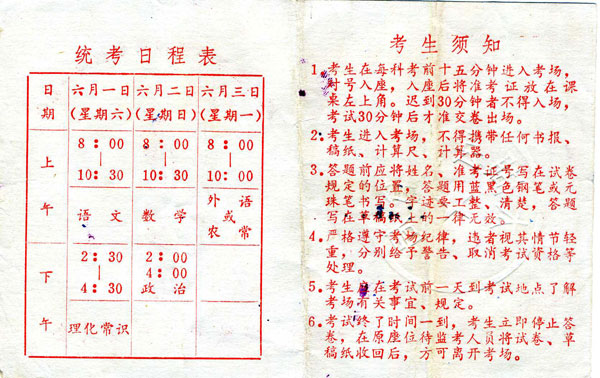 统考日程表
日期 六月一日(星期六) 六月二日(星期日) 六月三日(星期一)
上午 8:00|10:30 8:00|10:30 8:00|10:30
语文 数学 外语或农常
下午 2:30|4:30 2:00|4:00
政治
理化常识
考生须知
1、考生在每科考前十五分钟进入考场,
对号入座,入座后将准考证放在课
桌左上角。迟到30分钟者不得入场,
考试30分钟后才准交卷出场。
2、考生进入考场,不得携带任何书报、
稿纸、计算尺、计算器。
3、答题前应将姓名、准考证号写在试卷
规定的位置,答题用蓝黑色钢笔或元
珠笔书写。字迹要工整、清楚,答题
写在草稿纸上的一律无效。
4、严格遵守考场纪律,违者视其情节轻
重,分别给予警告、取消考试资格等
处理。
5、考生应在考试前一天到考试地点了解
考场有关事宜、规定。
6、考试终了时间一到,考生立即停止答
卷,在原座位待监考人员将试卷、草
稿纸收回后,方可离开考场。